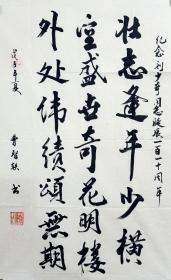 纪念刘少奇同志诞辰一百一十周年
壮志逢年少横
空盛世奇花明楼
外处伟绩颂无期
曹智敏书